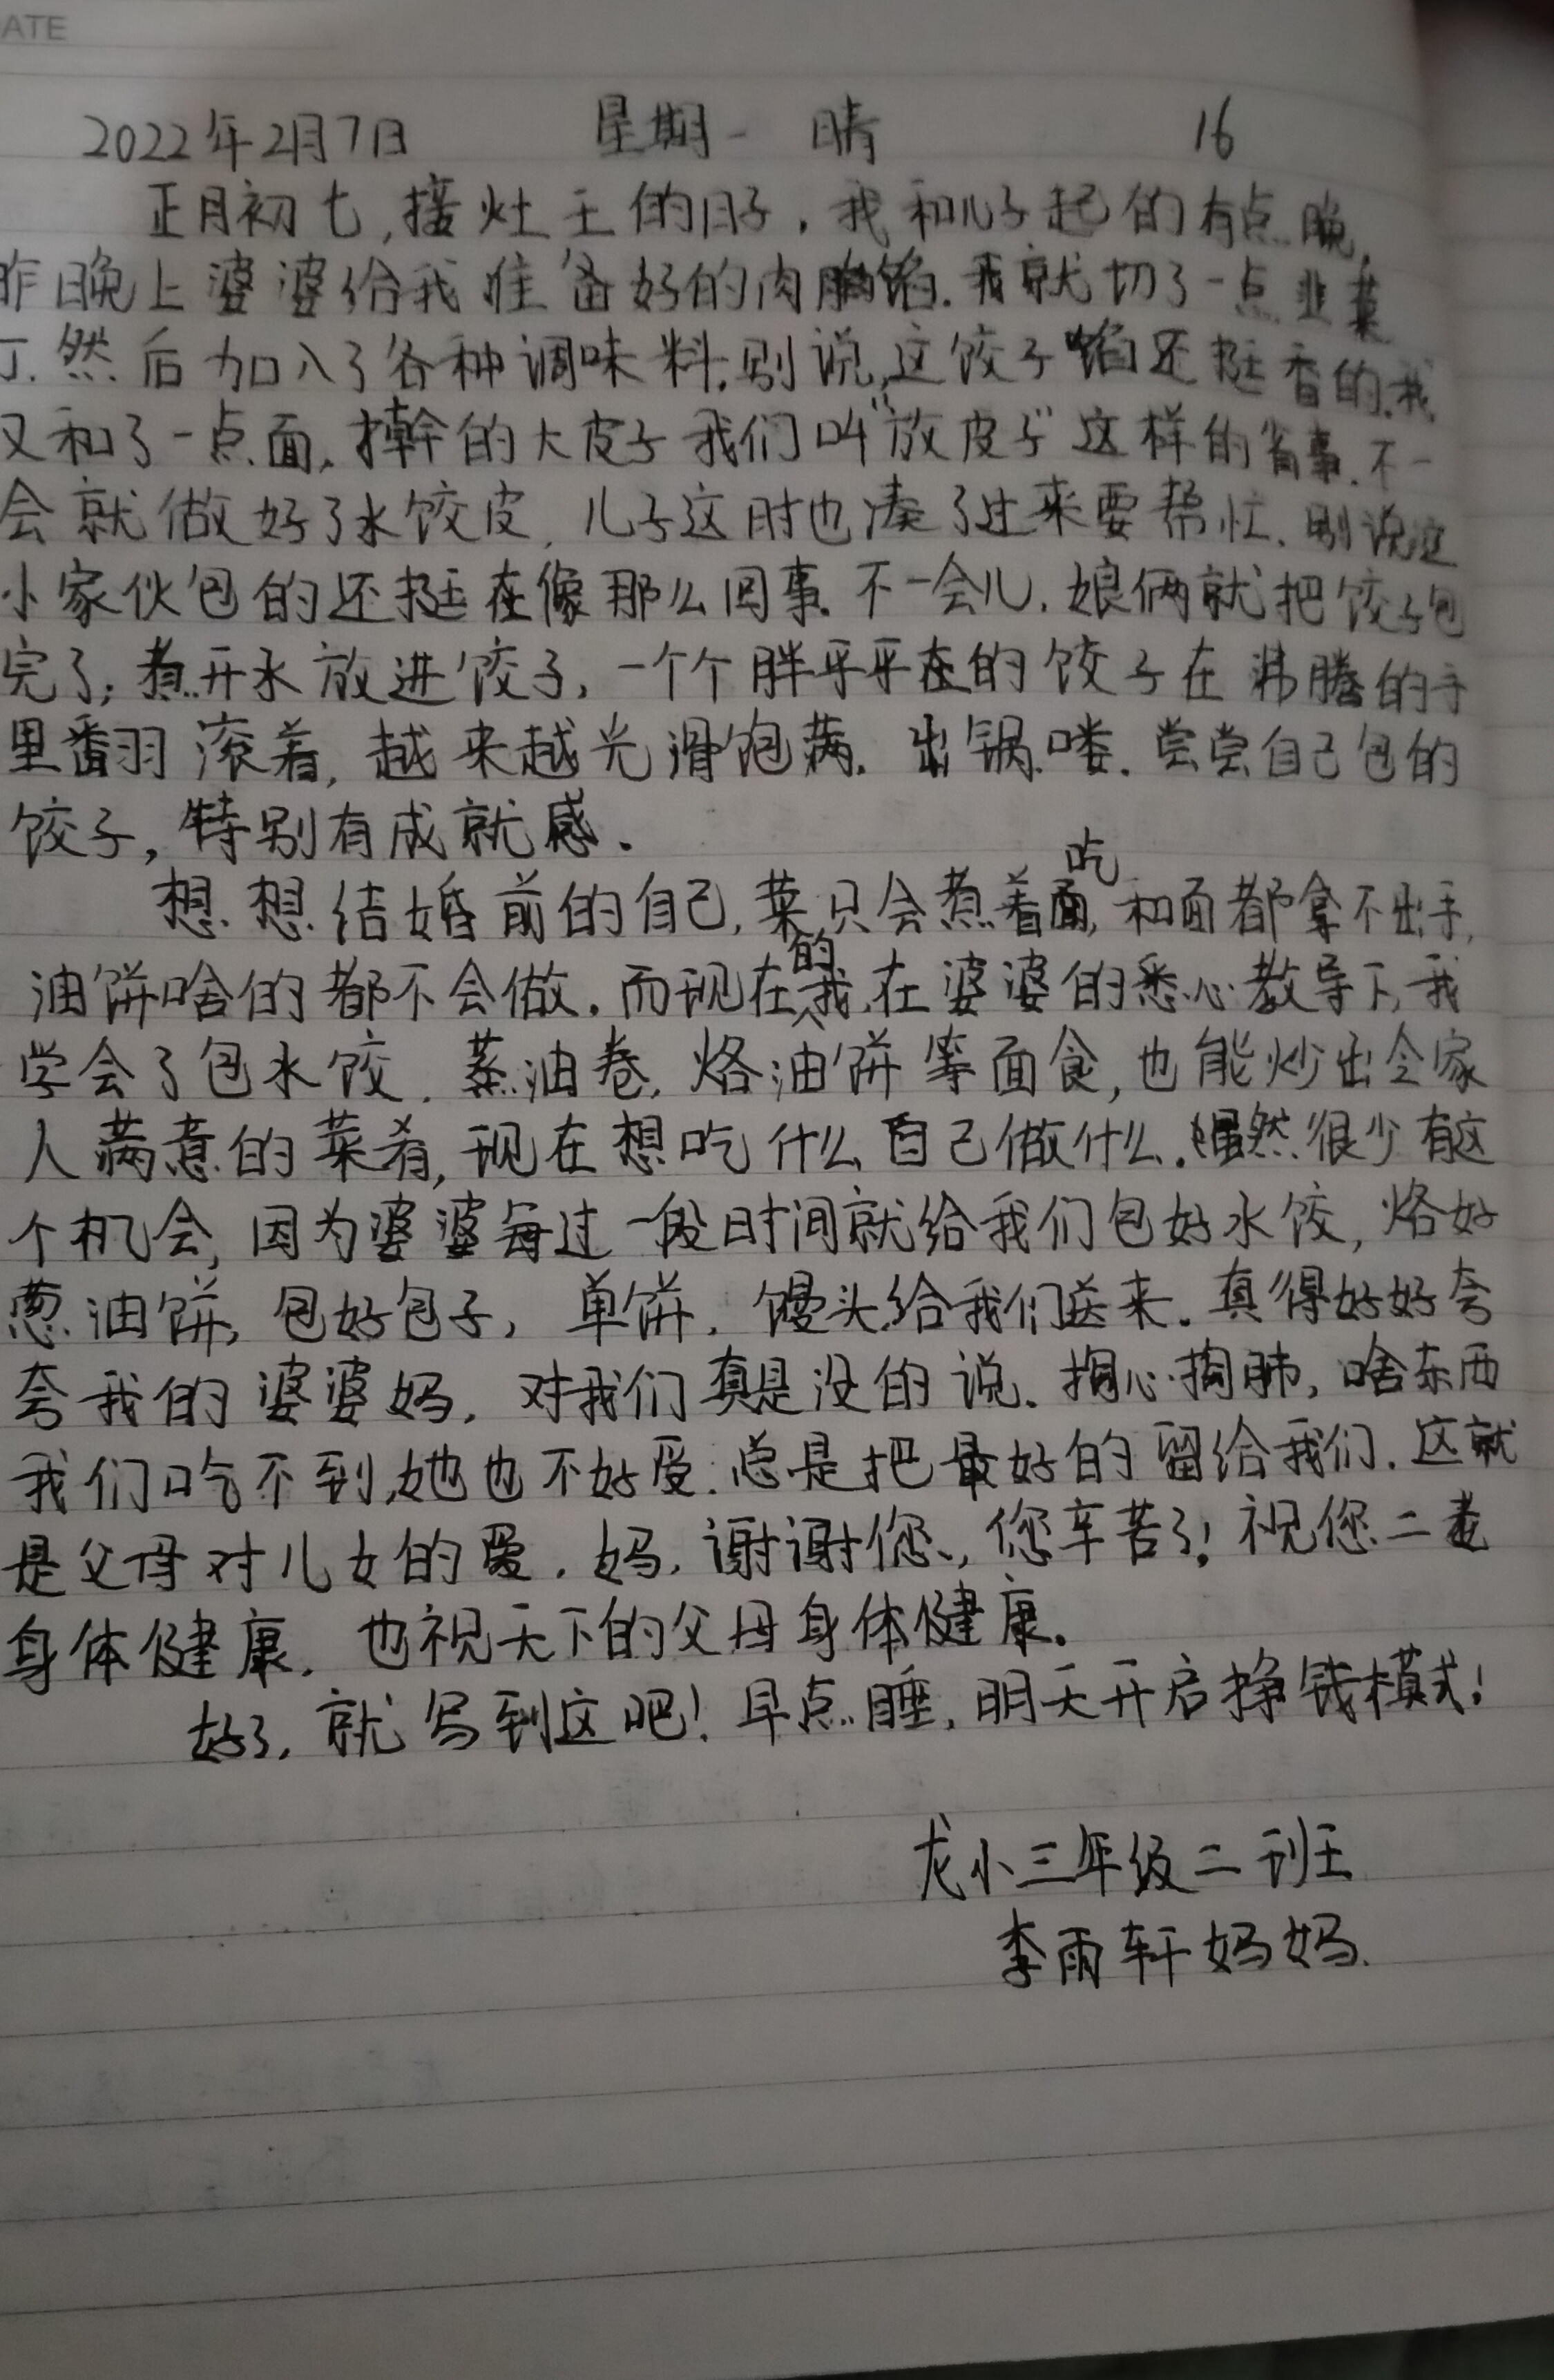 ATE
2022年2月7日 星期一 晴 16
正月初七,接灶王的日子,我和儿子起的有点晚,
昨晚上婆婆给我准备好的肉馅.我就切了一点韭菜
丁.然后加入了各种调味料.别说,这饺子馅还挺香的.我
又和了一点面,擀的大皮子我们叫"放皮子"这样的省事.不一
会就做好了水饺皮,儿子这时也凑了过来要帮忙.别说这
小家伙包的还挺在像那么回事.不一会儿.娘俩就把饺子包
完了,煮开水放进饺子,一个个胖乎乎在的饺子在沸腾的
里翻滚着,越来越光滑饱满.出锅喽.尝尝自己包的
饺子,特别有成就感.
想想结婚前的自己,菜只会煮着吃,和面都拿不出手,
油饼啥的都不会做.而现在的我,在婆婆的悉心教导下,我
学会了包水饺.蒸油卷,烙油饼等面食,也能炒出令家
人满意的菜肴,现在想吃什么自己做什么.虽然很少有这
个机会,因为婆婆每过一段时间就给我们包好水饺,烙好
葱油饼,包好包子,单饼.馒头给我们送来.真得好好夸
夸我的婆婆妈,对我们真是没的说.掏心掏肺,啥东西
我们吃不到,她也不好受.总是把最好的留给我们.这就
是父母对儿女的爱.妈,谢谢您,您辛苦了!祝您二老
身体健康.也祝天下的父母身体健康.
好了,就写到这吧!早点睡,明天开启挣钱模式!
龙小三年级二班
李雨轩妈妈.